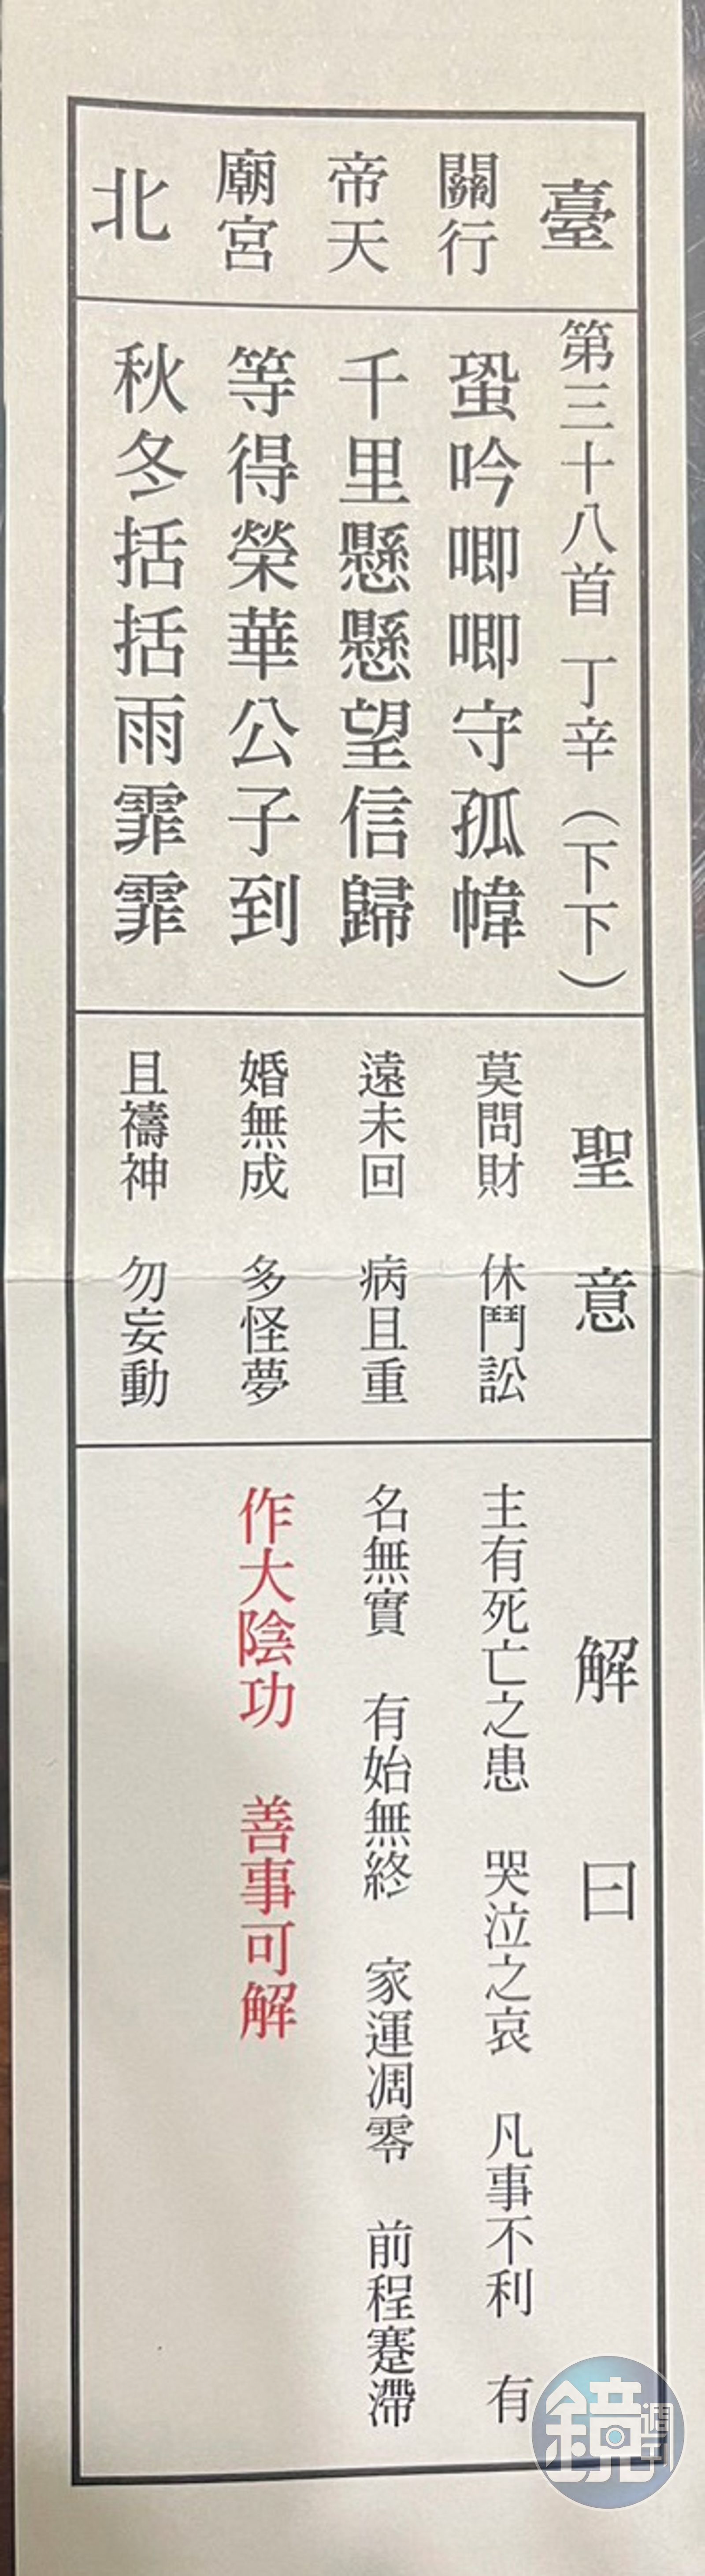 臺
關行
帝天
廟宮
北
第三十八首 丁辛（下下）
蛩吟唧唧守孤幃
千里懸懸望信歸
等得榮華公子到
秋冬括括雨霏霏
聖意
莫問財 休鬥訟
遠未回 病且重
婚無成 多怪夢
且禱神 勿妄動
解曰
主有死亡之患 哭泣之哀 凡事不利 有
名無實 有始無終 家運凋零 前程蹇滯
作大陰功 善事可解
鏡週刊